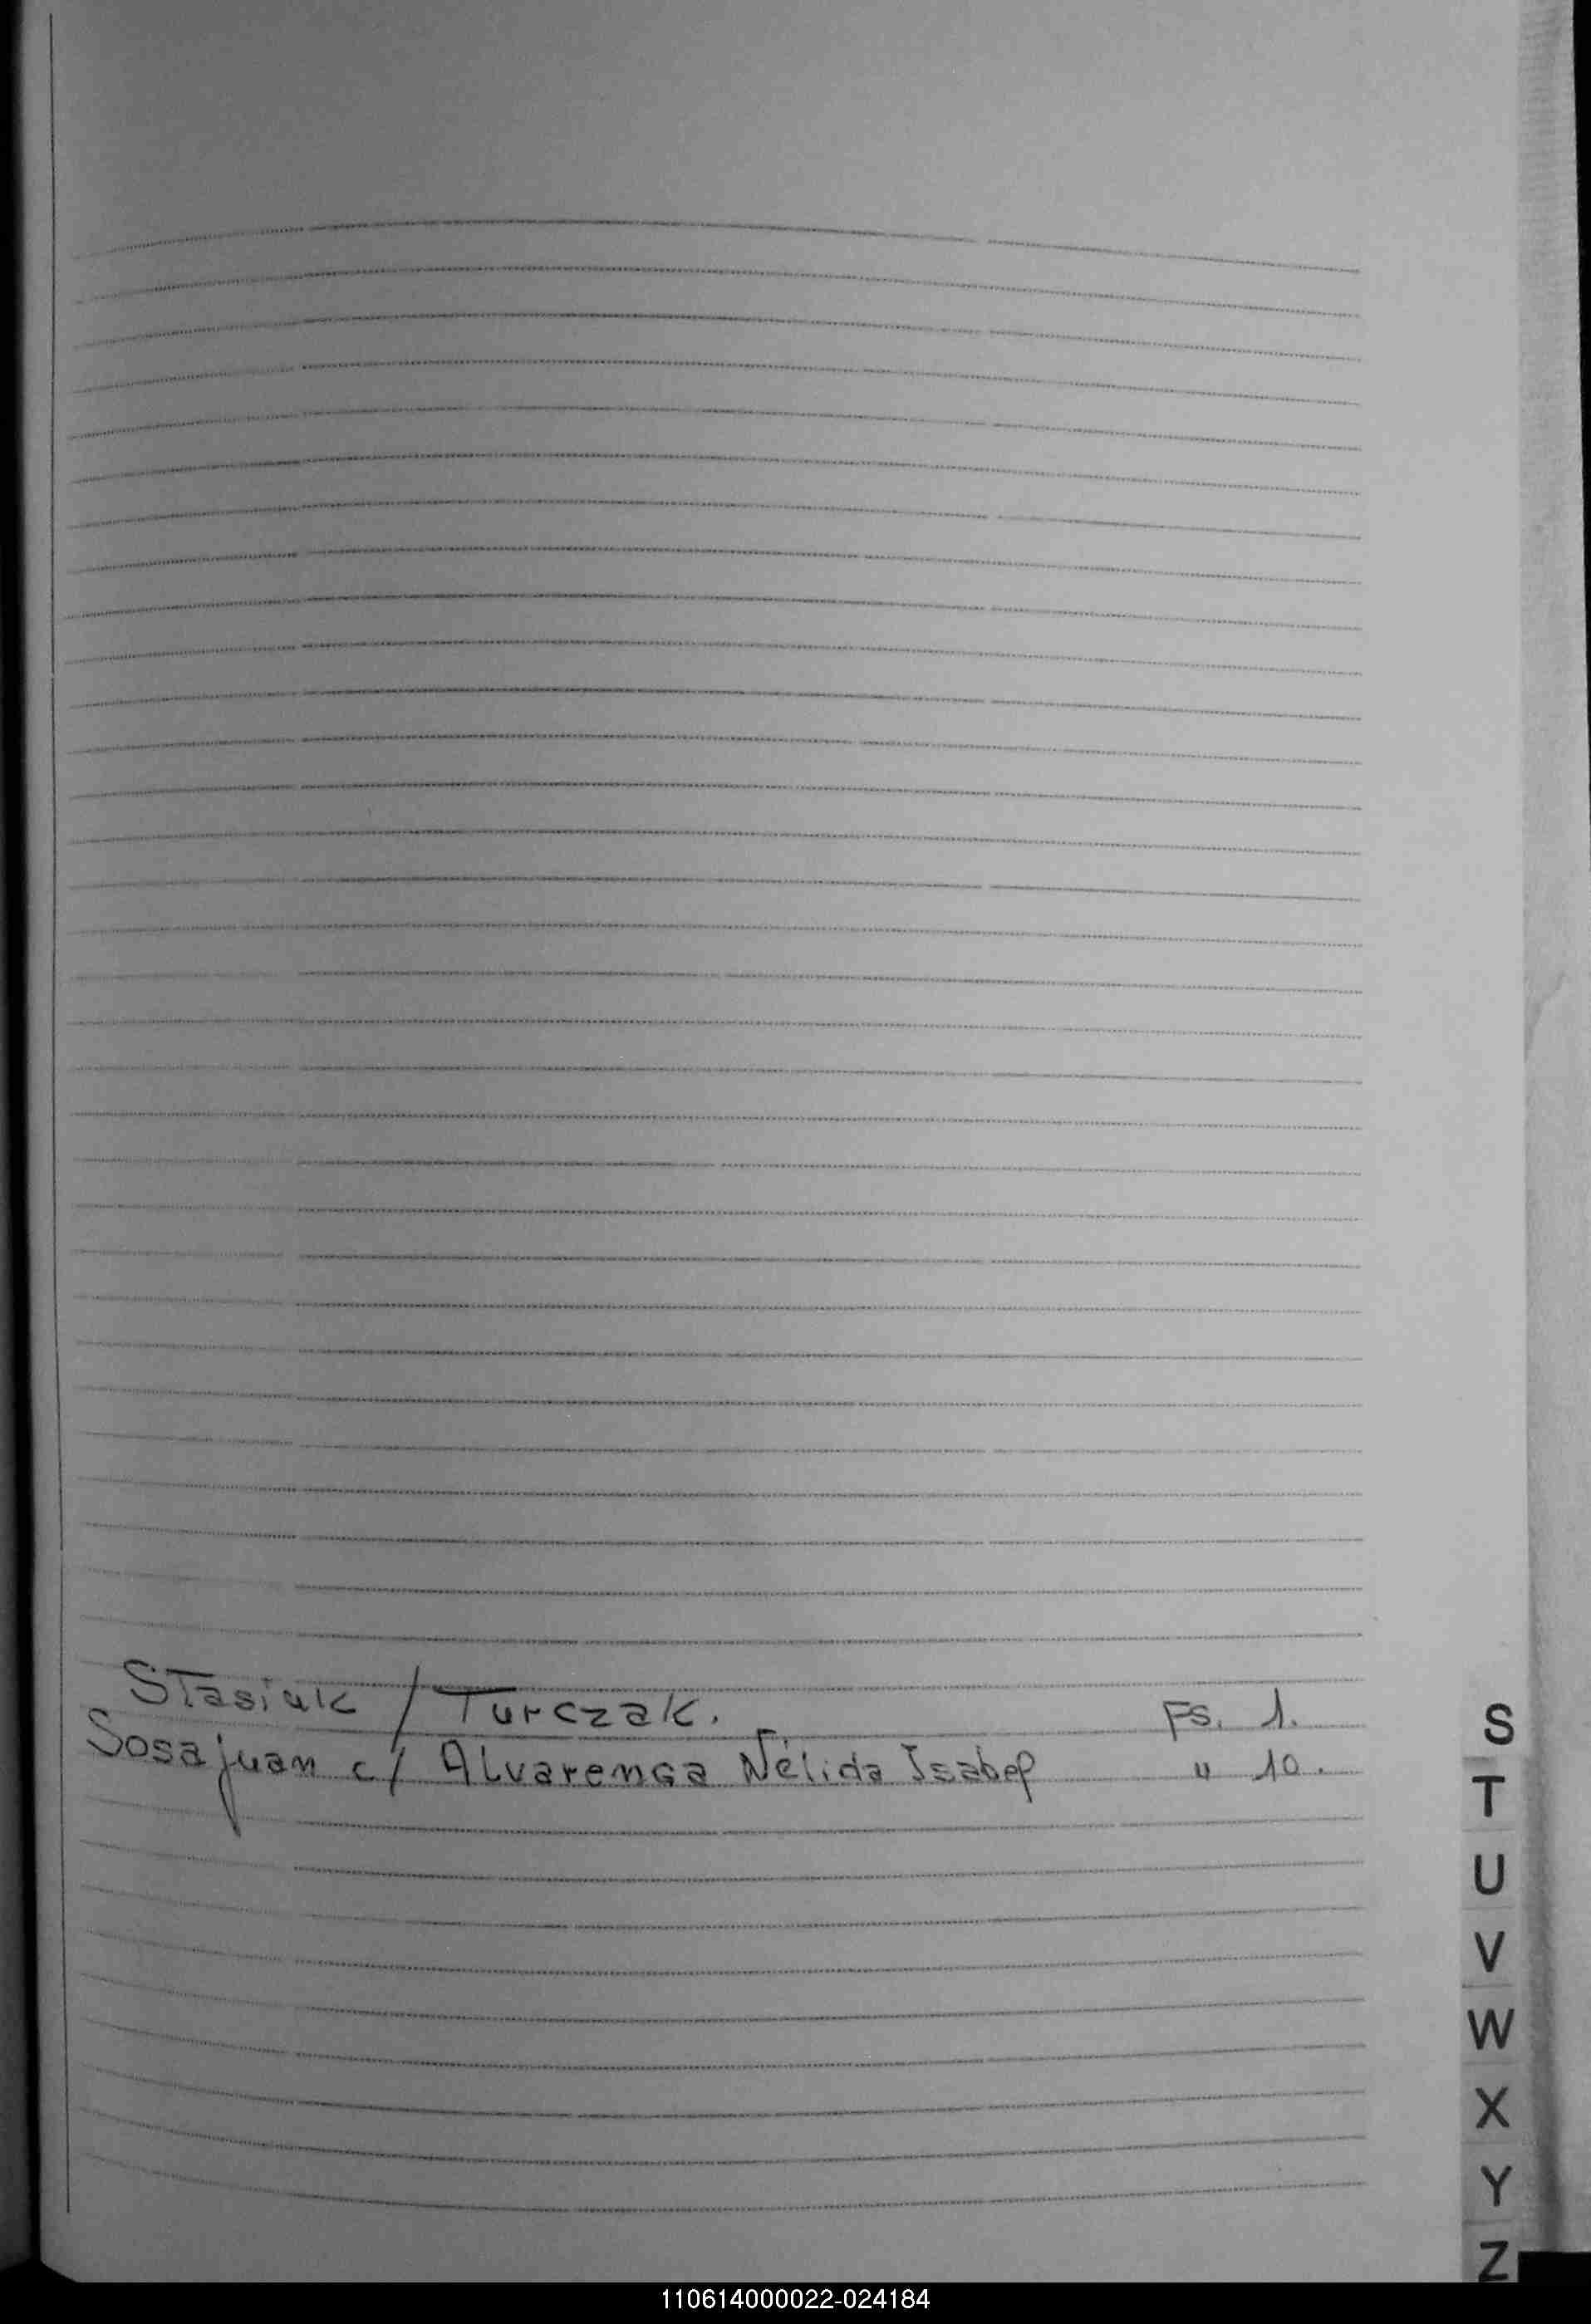 Stasiuk / Turczak. Fs. 1.
Sosa Juan c/ Alvarenga Nélida Isabel " 10.
S
T
U
V
W
X
Y
Z
110614000022-024184